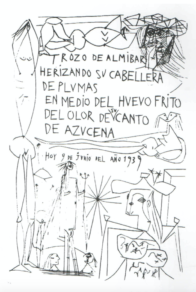 TROZO DE ALMIBAR
HERIZANDO SU CABELLERA
DE PLUMAS
EN MEDIO DEL HUEVO FRITO
DEL OLOR DEL CANTO
DE AZUCENA
HOY 9 DE JUNIO DEL AÑO 1939